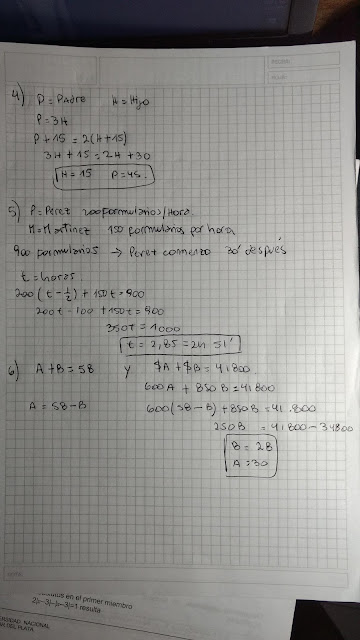 4) P = PADRE H = Hijo
P = 3H
P + 15 = 2(H + 15)
3H + 15 = 2H + 30
H = 15 P = 45.
5) P = Perez 200 formularios/Hora.
M = Martinez 150 formularios por hora
900 formularios → Perez comenzo 30' después
t = horas
200(t - 1/2) + 150t = 900
200t - 100 + 150t = 900
350t = 1000
t = 2,85 = 2H 51'
6) A + B = 58 y $A + $B = 41800.
600A + 850B = 41800
A = 58 - B
600(58 - B) + 850B = 41.800
250B = 41800 - 34800
B = 28
A = 30
en el primer miembro
resulta
NACIONAL
DEL PLATA